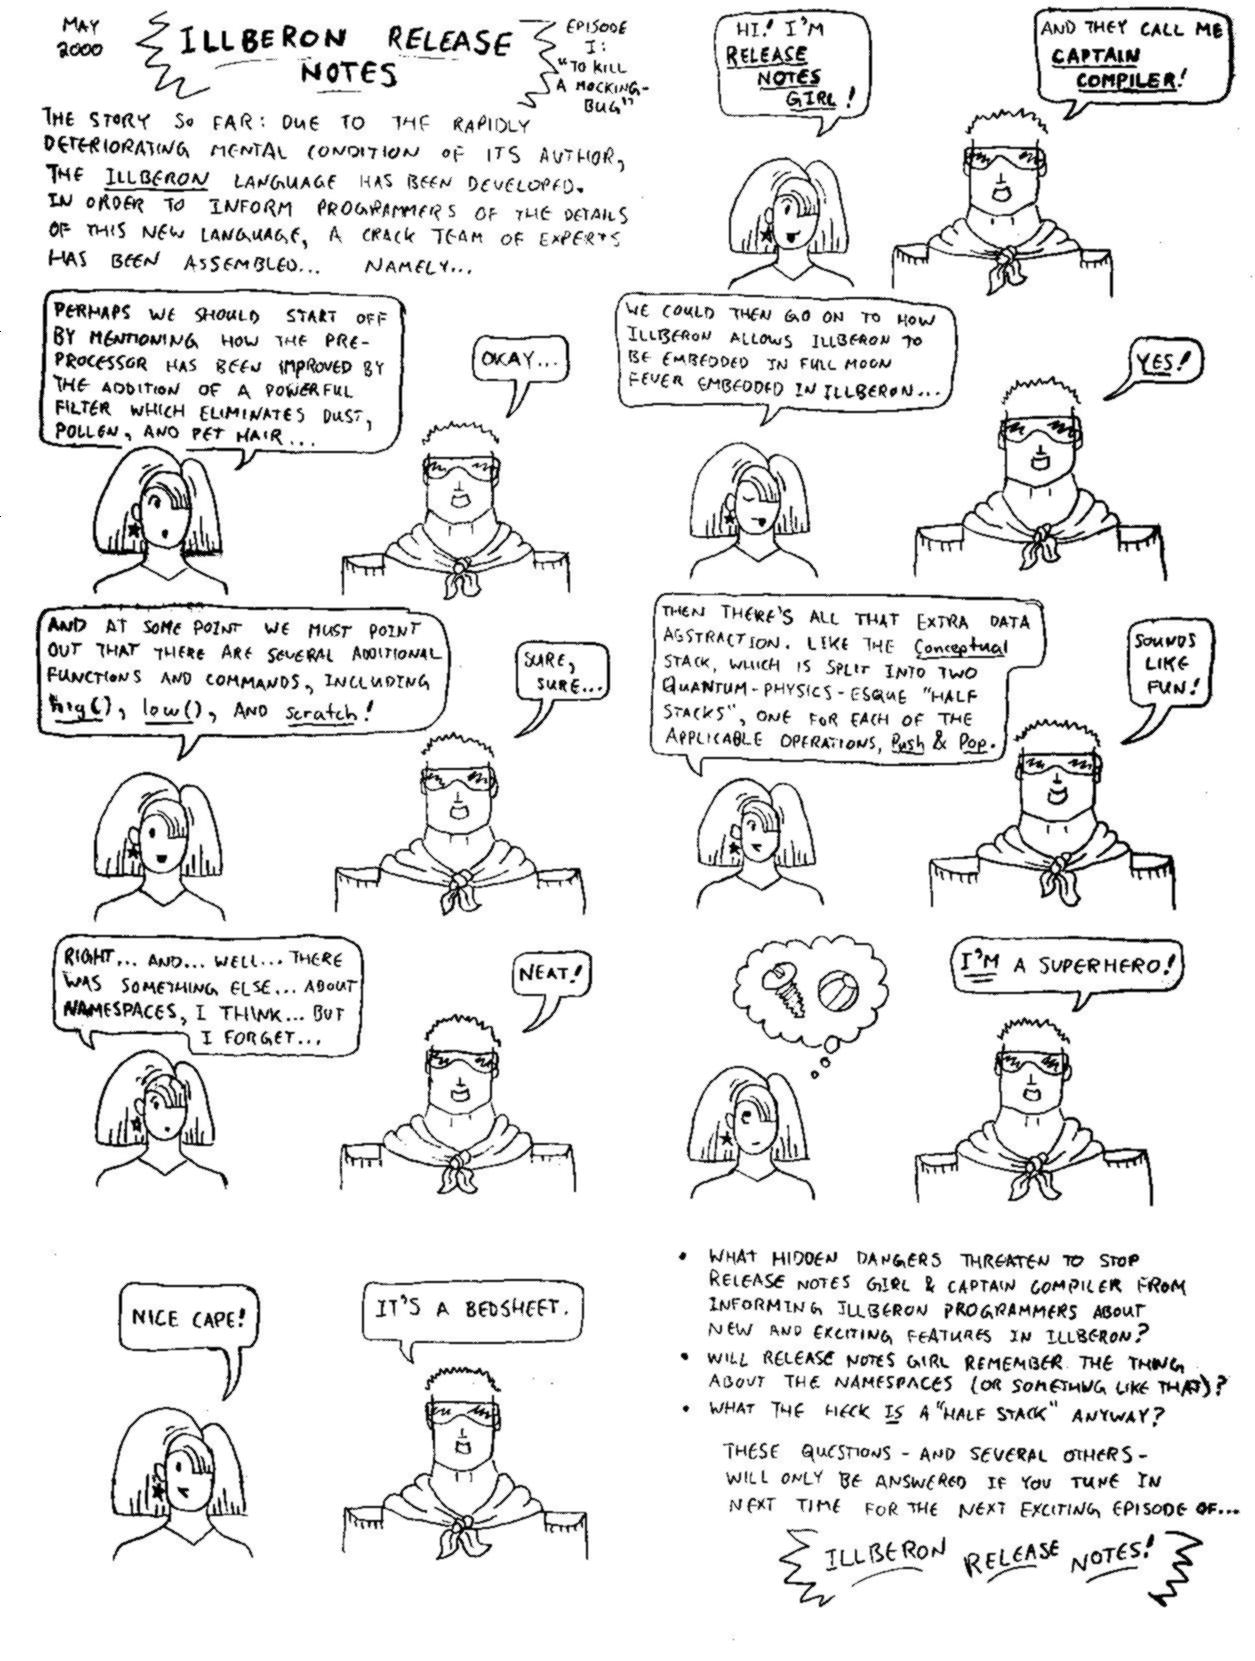 MAY
2000
ILLBERON RELEASE
NOTES
EPISODE
I:
"TO KILL
A MOCKING-
BUG"
THE STORY SO FAR: DUE TO THE RAPIDLY
DETERIORATING MENTAL CONDITION OF ITS AUTHOR,
THE ILLBERON LANGUAGE HAS BEEN DEVELOPED.
IN ORDER TO INFORM PROGRAMMERS OF THE DETAILS
OF THIS NEW LANGUAGE, A CRACK TEAM OF EXPERTS
HAS BEEN ASSEMBLED... NAMELY...
HI! I'M
RELEASE
NOTES
GIRL!
AND THEY CALL ME
CAPTAIN
COMPILER!
PERHAPS WE SHOULD START OFF
BY MENTIONING HOW THE PRE-
PROCESSOR HAS BEEN IMPROVED BY
THE ADDITION OF A POWERFUL
FILTER WHICH ELIMINATES DUST,
POLLEN, AND PET HAIR...
OKAY...
WE COULD THEN GO ON TO HOW
ILLBERON ALLOWS ILLBERON TO
BE EMBEDDED IN FULL MOON
FEVER EMBEDDED IN ILLBERON...
YES!
AND AT SOME POINT WE MUST POINT
OUT THAT THERE ARE SEVERAL ADDITIONAL
FUNCTIONS AND COMMANDS, INCLUDING
hig(), low(), AND scratch!
SURE,
SURE...
THEN THERE'S ALL THAT EXTRA DATA
ABSTRACTION. LIKE THE Conceptual
STACK, WHICH IS SPLIT INTO TWO
QUANTUM-PHYSICS-ESQUE "HALF
STACKS", ONE FOR EACH OF THE
APPLICABLE OPERATIONS, Push & Pop.
SOUNDS
LIKE
FUN!
RIGHT... AND... WELL... THERE
WAS SOMETHING ELSE... ABOUT
NAMESPACES, I THINK... BUT
I FORGET...
NEAT!
I'M A SUPERHERO!
NICE CAPE!
IT'S A BEDSHEET.
• WHAT HIDDEN DANGERS THREATEN TO STOP
RELEASE NOTES GIRL & CAPTAIN COMPILER FROM
INFORMING ILLBERON PROGRAMMERS ABOUT
NEW AND EXCITING FEATURES IN ILLBERON?
• WILL RELEASE NOTES GIRL REMEMBER THE THING
ABOUT THE NAMESPACES (OR SOMETHING LIKE THAT)?
• WHAT THE HECK IS A "HALF STACK" ANYWAY?
THESE QUESTIONS - AND SEVERAL OTHERS -
WILL ONLY BE ANSWERED IF YOU TUNE IN
NEXT TIME FOR THE NEXT EXCITING EPISODE OF...
ILLBERON RELEASE NOTES!